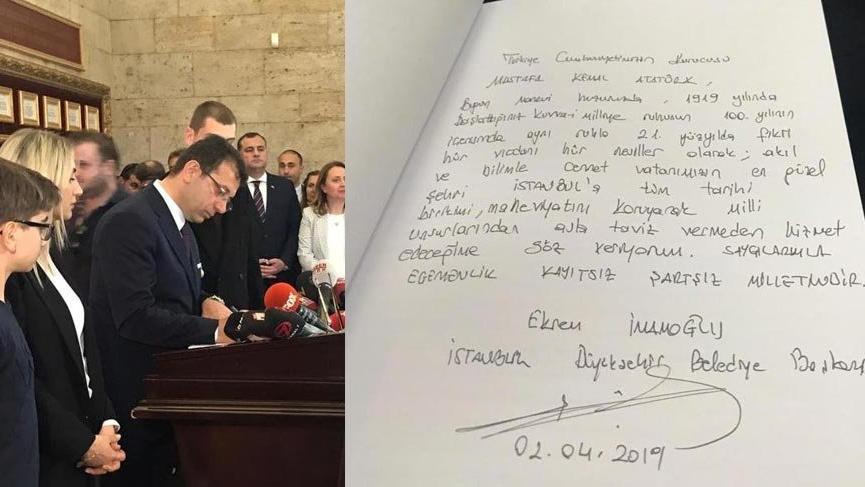 Türkiye Cumhuriyetimizin Kurucusu
MUSTAFA KEMAL ATATÜRK,
Bugün manevi huzurunuzda, 1919 yılında
Başlattığınız Kuvvai Milliye ruhunun 100. yılının
içerisinde aynı ruhla 21. yüzyılda fikri
hür vicdanı hür nesiller olarak; akıl
ve bilimle cennet vatanımızın en güzel
şehri İSTANBUL'a tüm tarihi
birikimi, maneviyatını koruyarak milli
unsurlarından asla taviz vermeden hizmet
edeceğime söz veriyorum. SAYGILARIMLA
EGEMENLİK KAYITSIZ ŞARTSIZ MİLLETİNDİR.
Ekrem İMAMOĞLU
İSTANBUL Büyükşehir Belediye Başkanı
02.04.2019
FOX